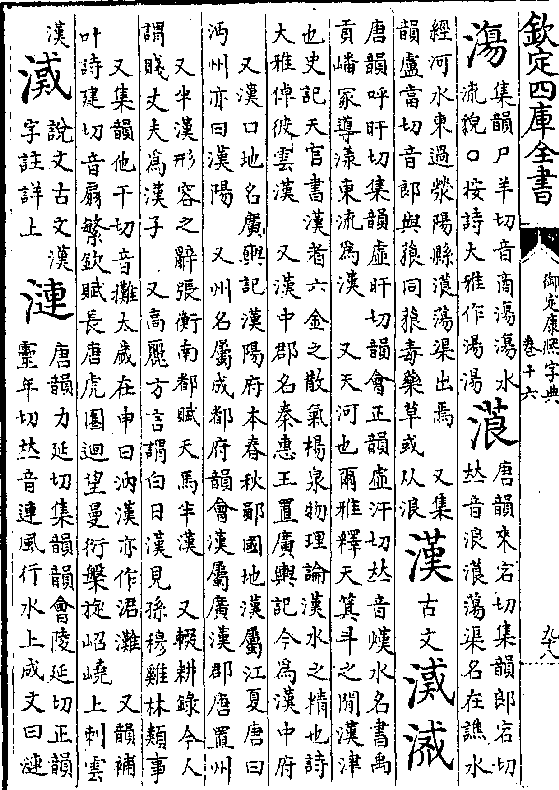 欽定四庫全書
御定康熙字典
卷十六
𤅢 集韻尸羊切音商𤅢𤅢水
流貌○按詩大雅作湯湯
蒗 唐韻來宕切集韻郎宕切
𠀤音浪蒗蕩渠名在譙水
經河水東過滎陽縣蒗蕩渠出焉 又集
韻盧當切音郎與㮾同㮾毒藥草或从浪
漢 古文 㵄 㴉
唐韻呼旰切集韻虛旰切韻會正韻虛汗切𠀤音熯水名書禹
貢嶓冢導漾東流為漢 又天河也爾雅釋天箕斗之閒漢津
也史記天官書漢者亦金之散氣楊泉物理論漢水之精也詩
大雅倬彼雲漢 又漢中郡名秦惠王置廣輿記今為漢中府
又漢口地名廣輿記漢陽府本春秋鄖國地漢屬江夏唐曰
沔州亦曰漢陽 又州名屬成都府韻會漢屬廣漢郡唐置州
又半漢形容之辭張衡南都賦天馬半漢 又輟耕錄今人
謂賤丈夫為漢子 又高麗方言謂白曰漢見孫穆雞林類事
又集韻他干切音攤太歲在申曰汭漢亦作涒灘 又韻補
叶詩建切音扇繁欽賦長唐虎圈迴望曼衍槃旋岹嶢上刺雲
漢
㵄 說文古文漢
字註詳上
漣 唐韻力延切集韻韻會陵延切正韻
靈年切𠀤音連風行水上成文曰漣